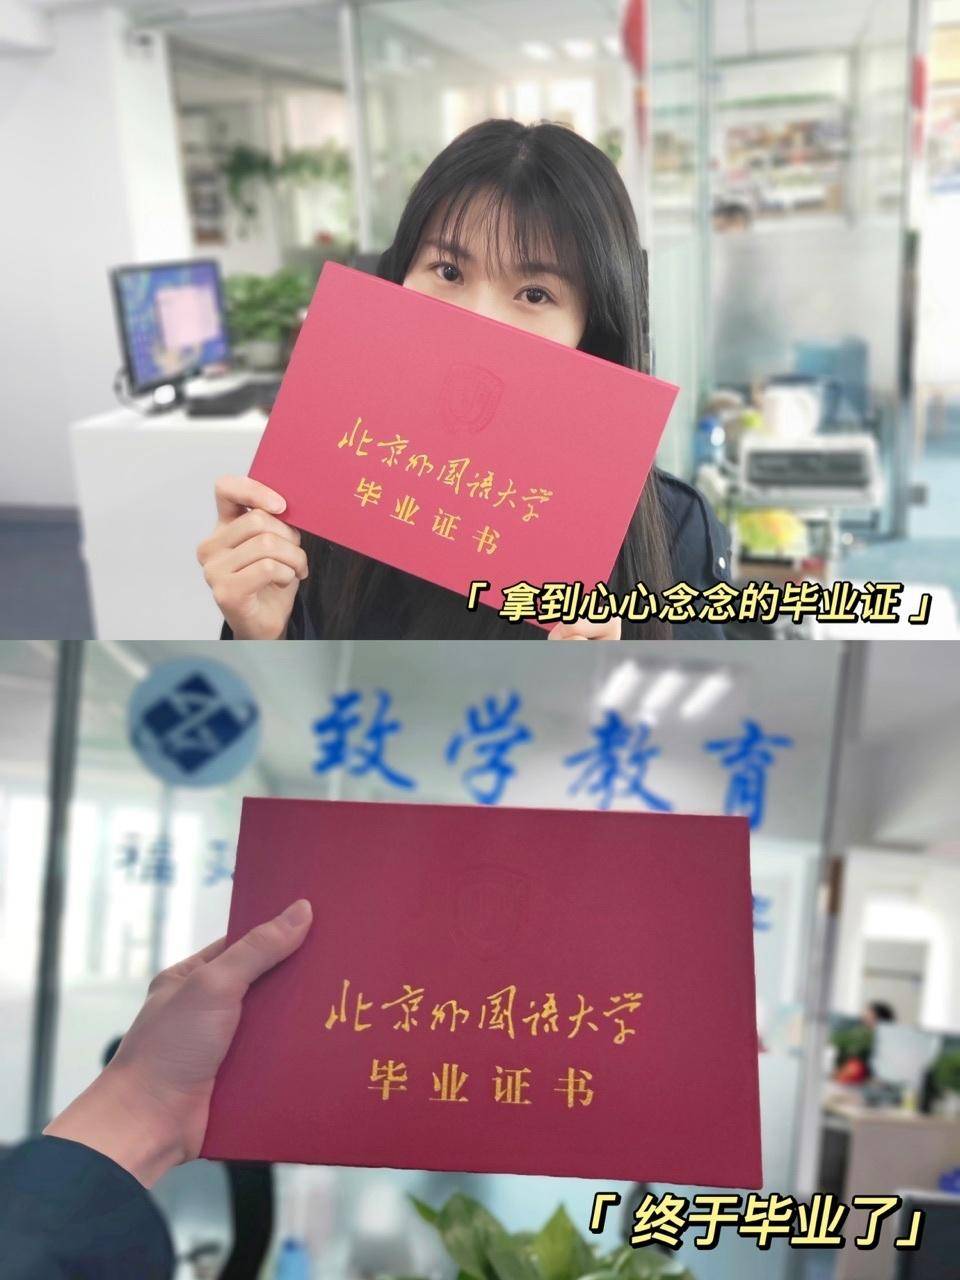 北京外国语大学
毕业证书
「拿到心心念念的毕业证」
致学教育
北京外国语大学
毕业证书
「终于毕业了」